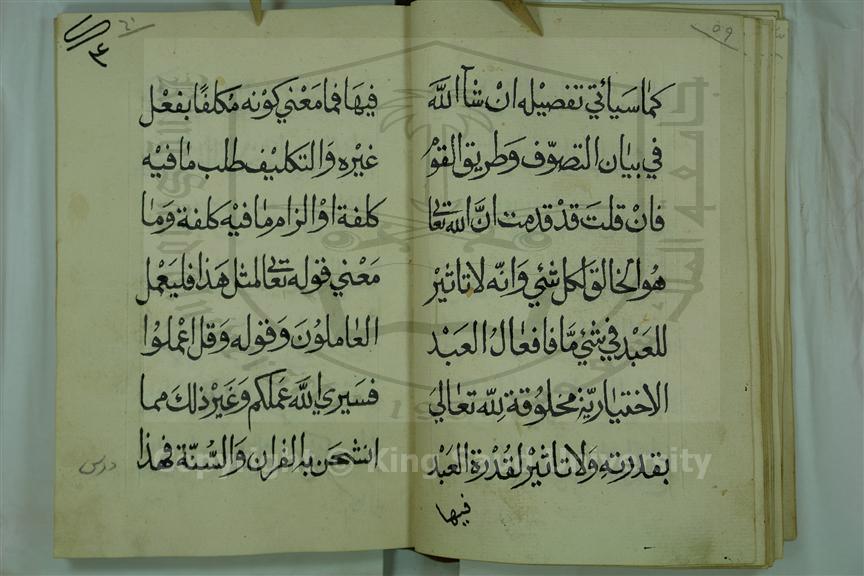 ٥٩
كماسيائتي تفصيله ان شآ الله
في بيان التصوّف وطريق القوم
فان قلت قد قدمت انّ الله تعالى
هو الخالق لكل شئي وانّه لا تاثير
للعبد في شئي مّا فافعال العبد
الاختياريّة مخلوقة لله تعالى
بقدرته ولا تاثير لقدرة العبد
فيها
٦٠
فيها فما معني كونه مكلفًا بفعل
غيره والتكليف طلب ما فيه
كلفة او الزام ما فيه كلفة وما
معني قوله تعالى لمثل هذا فليعمل
العاملون وقوله وقل اعملوا
فسيري الله عملكم وغير ذلك مما
انشحن به القران والسّنّة فهذا
Copyright © King Saud University